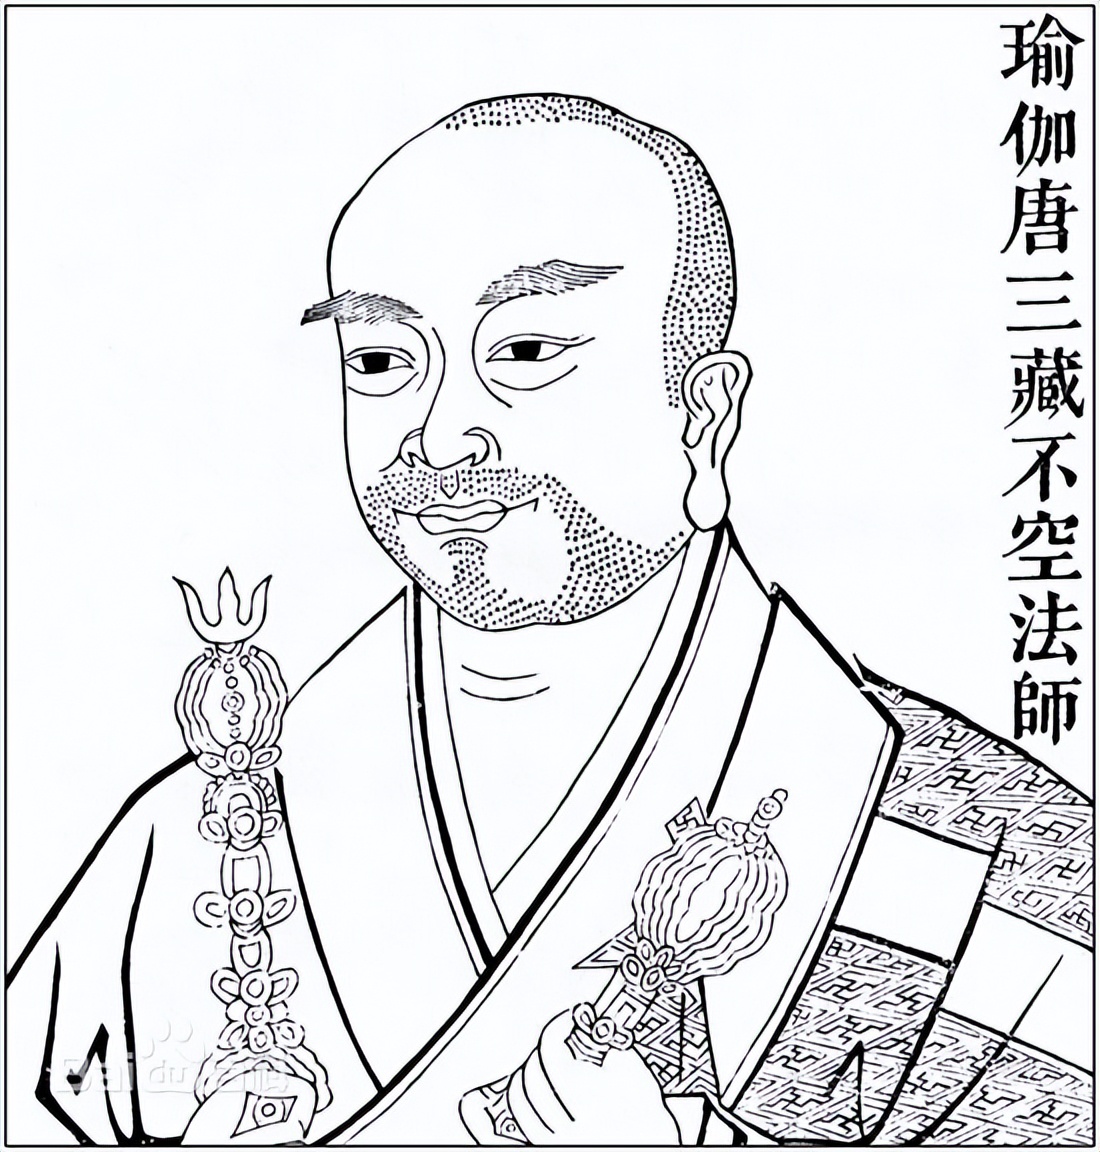 瑜伽唐三藏不空法師
Baidu百科